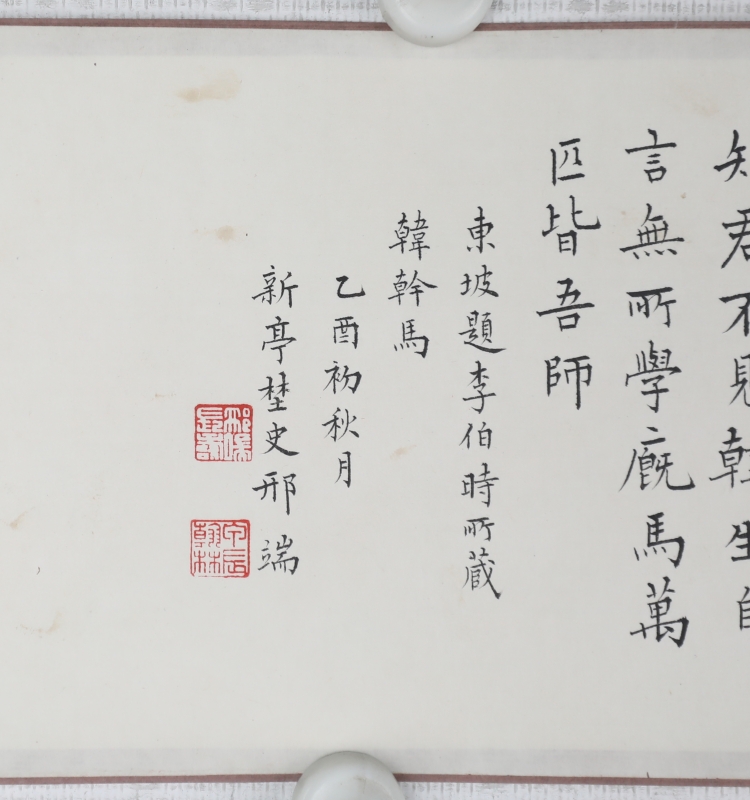 知君不見韓生自
言無所學廐馬萬
匹皆吾師
東坡題李伯時所蔵
韓幹馬
乙酉初秋月
新亭埜史邢端
甲辰翰林